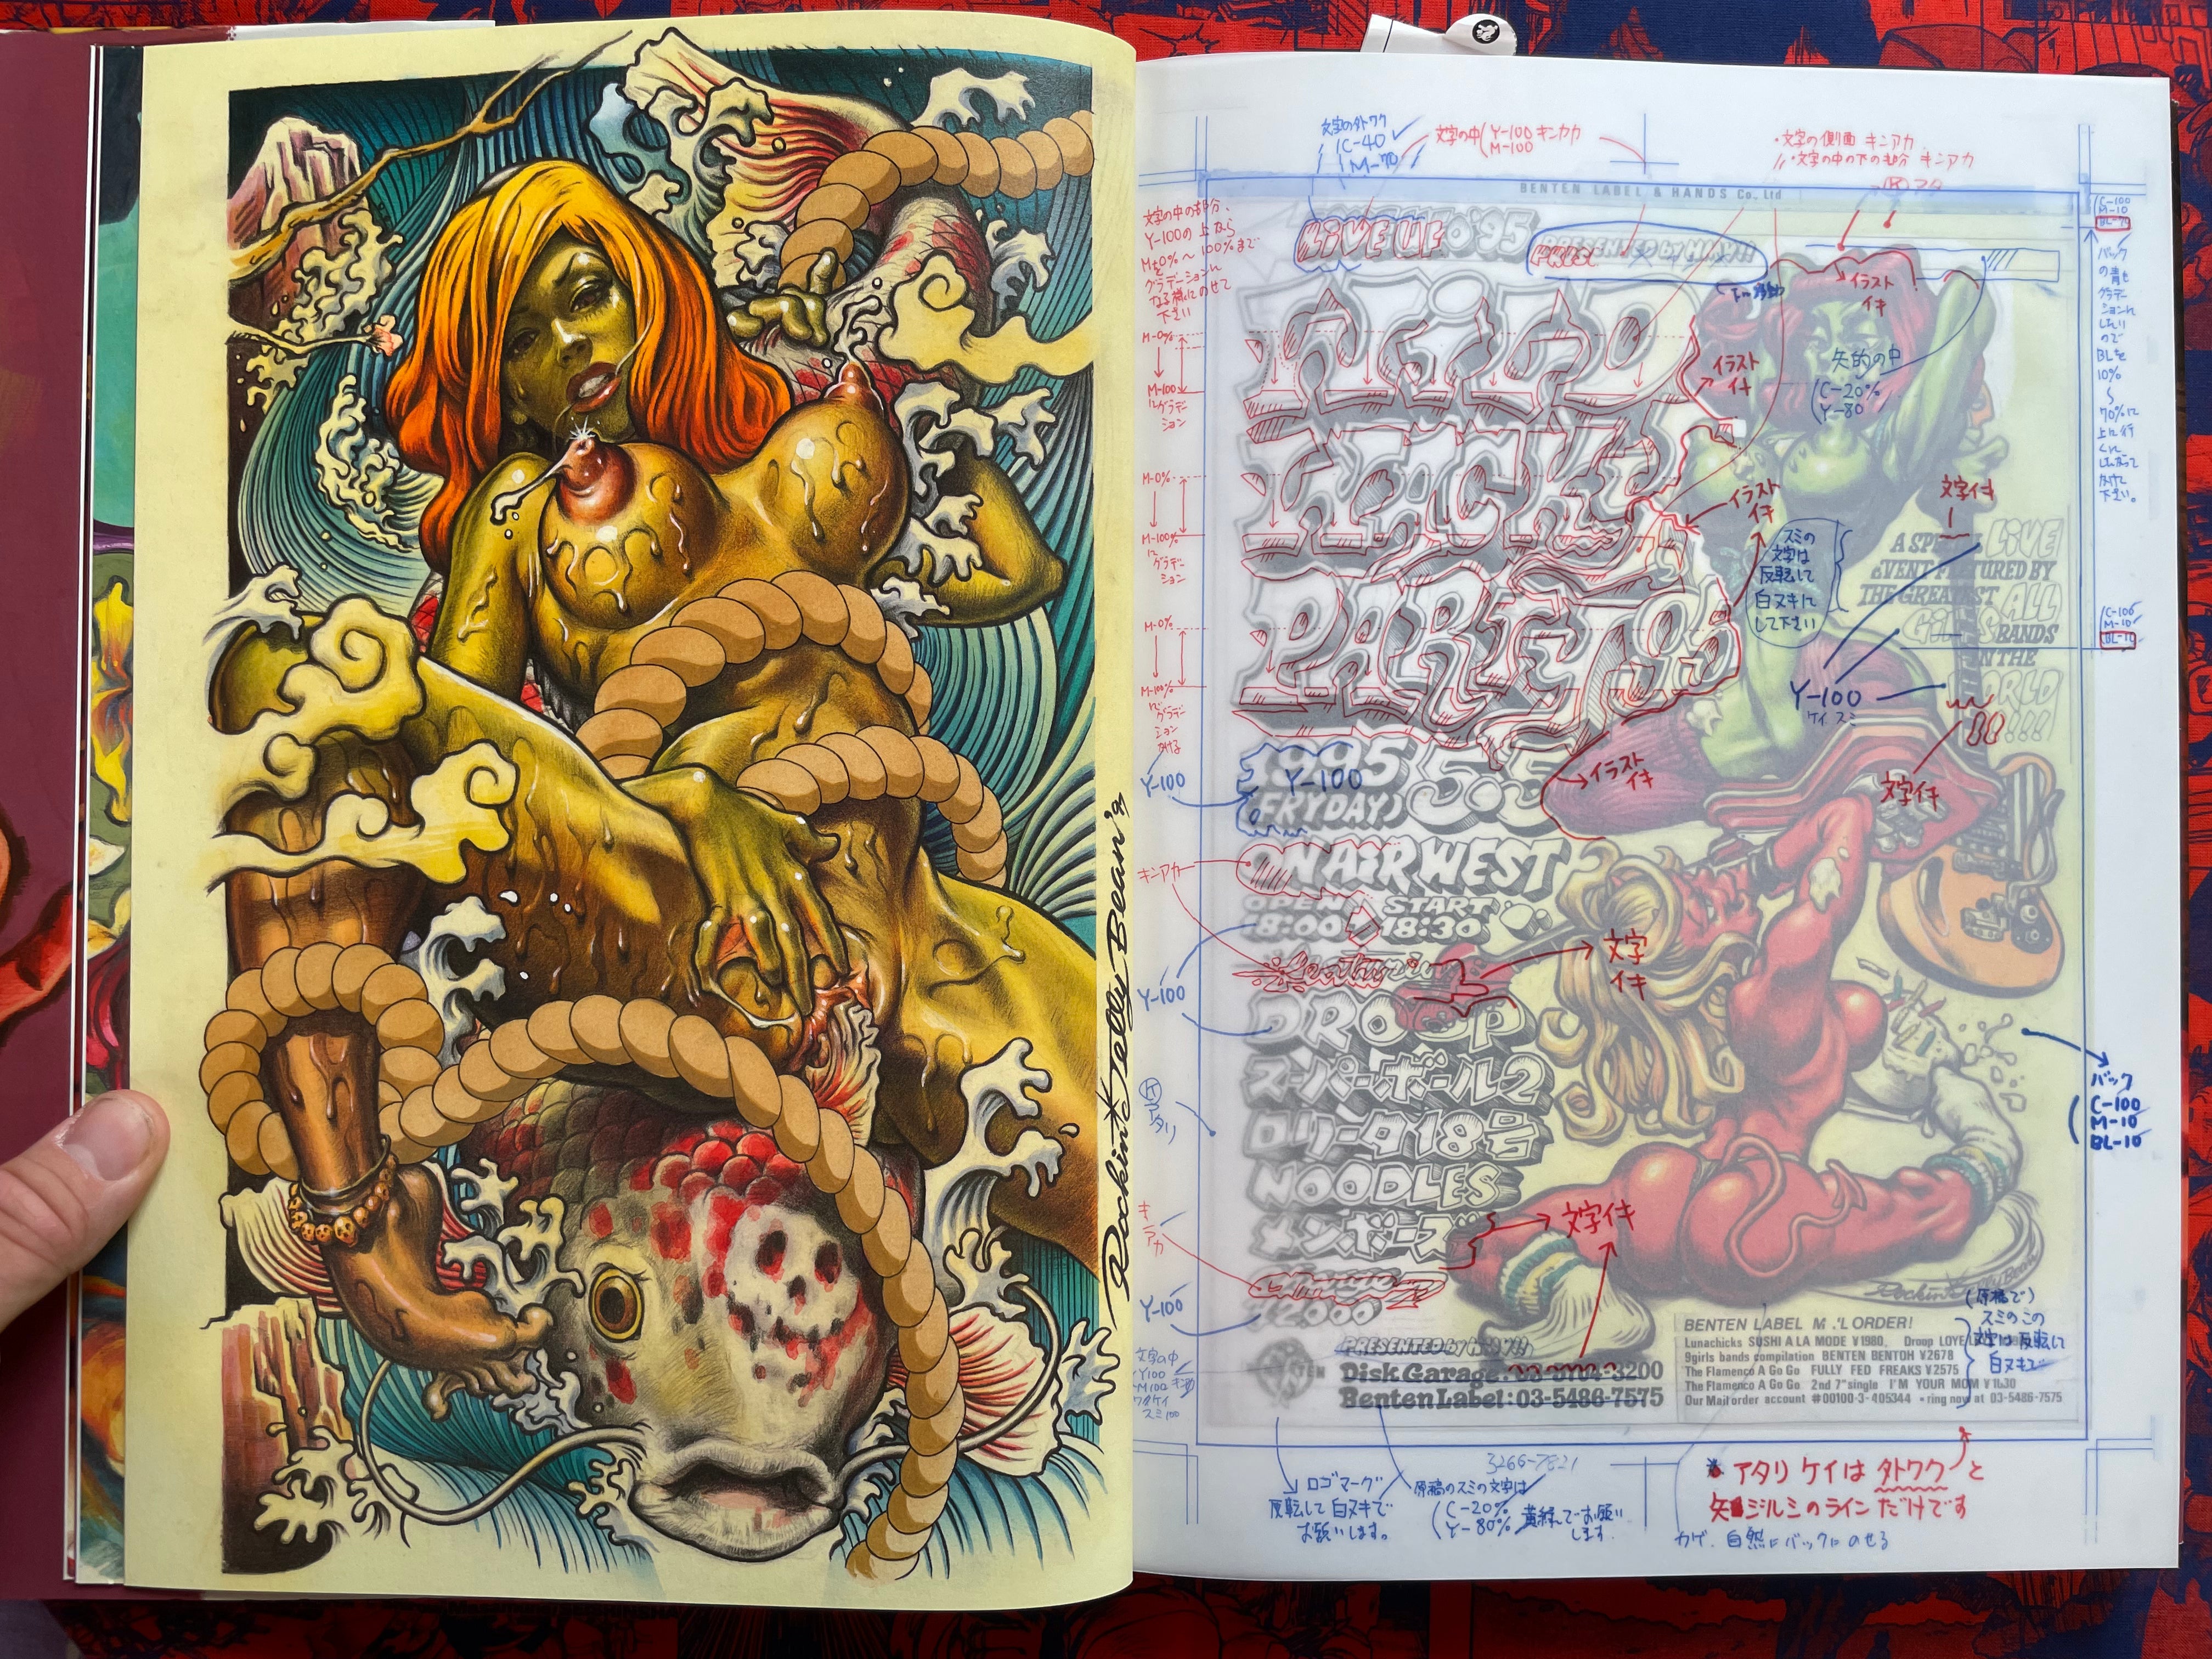 Rockin'Jelly Bean '99
文字の外ワク
C-40
M-70
文字の中
Y-100 キンアカ
M-100
・文字の側面 キンアカ
文字の中の下の部分 キンアカ
BENTEN LABEL & HANDS Co., Ltd
文字の中の部分、
Y-100の上から
M±0%〜100%まで
グラデーションに
なる様にのせて
下さい
LIVE UFO'95
PRESENTED by MAX!!
C-100
M-10
バック
の青も
グラデー
ションに
したい
ので
BLを
10%
〜
70%に
上に行
くに
したがって
あげて
下さい。
イラスト
イキ
M-0%
M-100
にグラデー
ション
イラスト
イキ
矢的の中
C-20%
Y-80
M-0%
M-100%
に
グラデー
ション
イラスト
イキ
文字イキ
スミの
文字は
反転して
白ヌキに
して下さい
A SPECIAL LIVE
EVENT FEATURED BY
THE GREATEST ALL
GIRLS BANDS
IN THE
WORLD
!!!!
PARTY '95
M-0%
M-100%
に
グラデー
ション
かける
C-100
M-10
BL-10
Y-100
ケイ スミ
1995 5.5
(FRYDAY)
Y-100
Y-100
イラスト
イキ
文字イキ
ON AiR WEST
キンアカ
OPEN START
18:00 18:30
featuring
文字
イキ
Y-100
DROOP
スーパーボール2
ロリータ18号
NOODLES
メンボーズ
ケアタリ
バック
C-100
M-10
BL-10
キン
アカ
文字イキ
Y-100
¥2000
Rockin'Jelly Bean
PRESENTED by MAX!!
Disk Garage:
Benten Label:03-5486-7575
BENTEN LABEL MAIL ORDER!
Lunachicks SUSHI A LA MODE ¥1980,
9girls bands compilation BENTEN BENTOH ¥2678
The Flamenco A Go Go FULLY FED FREAKS ¥2575
The Flamenco A Go Go 2nd 7"single I'M YOUR MOM
Our Mail order account #00100-3-405344 •ring now at 03-5486-7575
(原稿で)
スミのこの
文字は反転して
白ヌキで
文字の中
・Y100
・M100
スミ100
3266-7821
ロゴマーク
反転して白ヌキで
お願いします。
原稿のスミの文字は
C-20%
Y-80%
でお願い
します.
アタリ ケイは 外ワク と
矢ジルシのラインだけです
カゲ、自然にバックにのせる